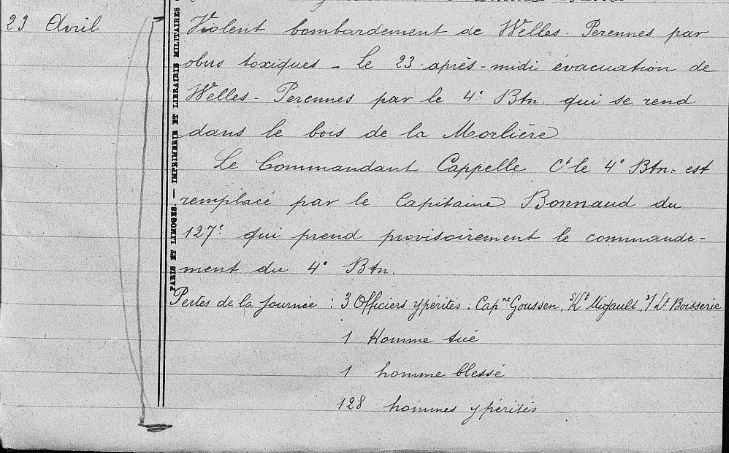 23 Avril
Violent bombardement de Welles-Perennes par
obus toxiques - Le 23 après-midi évacuation de
Welles-Perennes par le 4e Btn qui se rend
dans le bois de la Morlière
Le Commandant Cappelle Ct le 4e Btn. est
remplacé par le Capitaine Bonnaud du
127e qui prend provisoirement le commande-
ment du 4e Btn.
Pertes de la journée : 3 Officiers ypérités : Capne Goussen, S/Lt Migault, S/Lt Boisserie
1 Homme tué
1 homme blessé
128 hommes ypérités
PARIS ET LIMOGES. — IMPRIMERIE ET LIBRAIRIE MILITAIRES